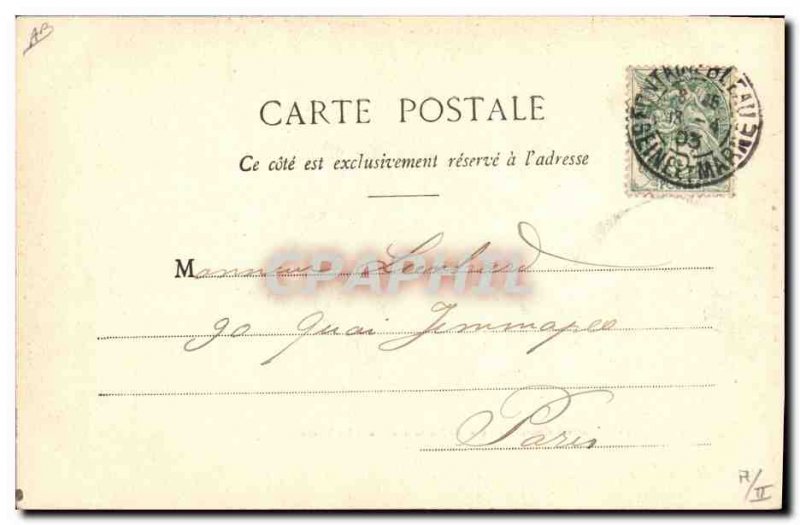 AB
CARTE POSTALE
Ce côté est exclusivement réservé à l'adresse
FONTAINEBLEAU
03
SEINE ET MARNE
Monsieur
90 Quai Jemmapes
Paris
CPAPHIL
A/II